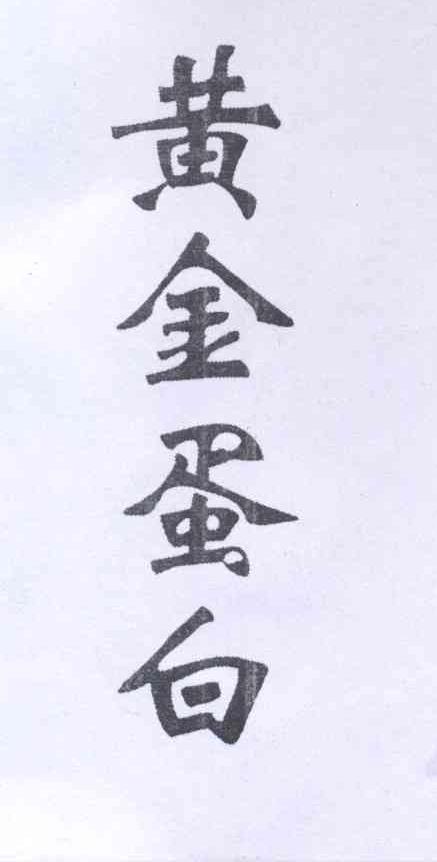 黄金蛋白